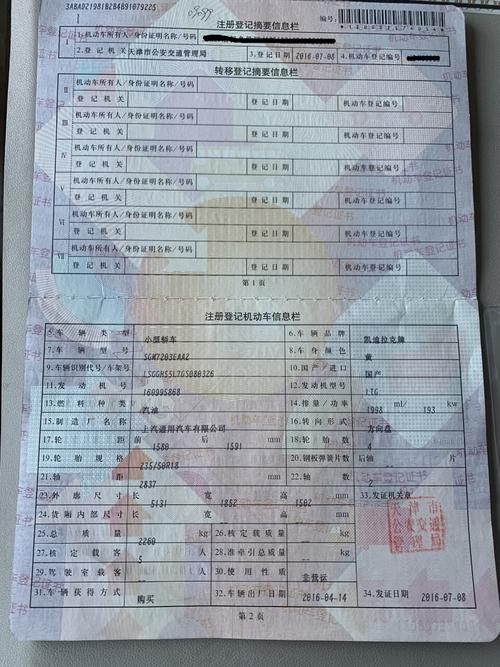 注册登记摘要信息栏
1.机动车所有人/身份证明名称/号码
2.登记机关 天津市公安交通管理局 3.登记日期 2016-07-08 4.机动车登记编号
转移登记摘要信息栏
Ⅱ 机动车所有人/身份证明名称/号码
登记机关 登记日期 机动车登记编号
Ⅲ 机动车所有人/身份证明名称/号码
登记机关 登记日期 机动车登记编号
Ⅳ 机动车所有人/身份证明名称/号码
登记机关 登记日期 机动车登记编号
Ⅴ 机动车所有人/身份证明名称/号码
登记机关 登记日期 机动车登记编号
Ⅵ 机动车所有人/身份证明名称/号码
登记机关 登记日期 机动车登记编号
Ⅶ 机动车所有人/身份证明名称/号码
登记机关 登记日期 机动车登记编号
第1页
注册登记机动车信息栏
5.车辆类型 小型轿车 6.车辆品牌 凯迪拉克牌
7.车辆型号 SGM7203EAA2 8.车身颜色 黄
9.车辆识别代号/车架号 10.国产/进口 国产
11.发动机号 160995868 12.发动机型号 LTG
13.燃料种类 汽油 14.排量/功率 1998 ml/ 193 kw
15.制造厂名称 上汽通用汽车有限公司 16.转向形式 方向盘
17.轮距 前 1580 后 1591 mm 18.轮胎数 4
19.轮胎规格 235/50R18 20.钢板弹簧片数 后轴 片
21.轴距 2837 mm 22.轴数 2
23.外廓尺寸 长 5131 宽 1852 高 1502 mm 33.发证机关章
24.货厢内部尺寸 长 宽 高 mm
天津市公安交通管理局
25.总质量 2260 kg 26.核定载质量 kg
27.核定载客 5 人 28.准牵引总质量 kg
29.驾驶室载客 人 30.使用性质 非营运
31.车辆获得方式 购买 32.车辆出厂日期 2016-04-14 34.发证日期 2016-07-08
第2页